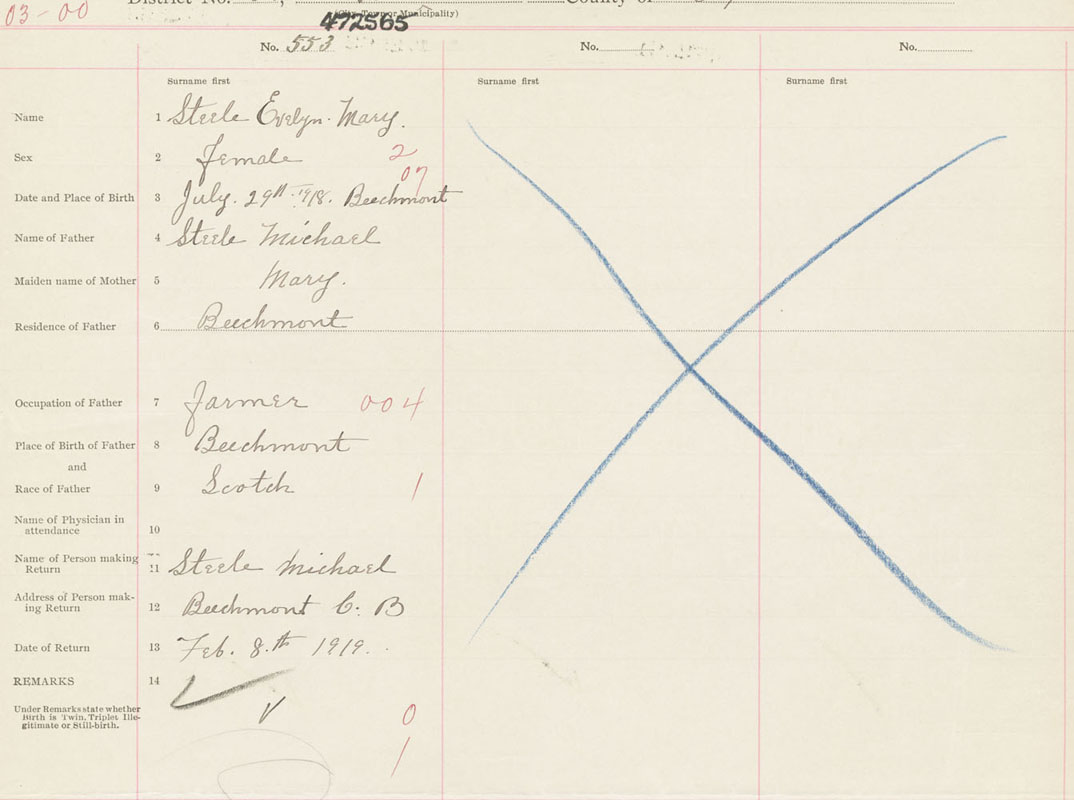 03-00
District No.
County of
(City, Town or Municipality)
472565
No. 553
No.
No.
Surname first
Surname first
Surname first
Name 1 Steele Evelyn. Mary.
Sex 2 female 2
07
Date and Place of Birth 3 July. 29th. 1918. Beechmont
Name of Father 4 Steele Michael
Maiden name of Mother 5 Mary.
Residence of Father 6 Beechmont
Occupation of Father 7 farmer 004
Place of Birth of Father 8 Beechmont
and
Race of Father 9 Scotch 1
Name of Physician in
attendance 10
Name of Person making
Return 11 Steele Michael
Address of Person mak-
ing Return 12 Beechmont C. B
Date of Return 13 Feb. 8.th 1919.
REMARKS 14
Under Remarks state whether
Birth is Twin, Triplet, Ille-
gitimate or Still-birth.
0
1